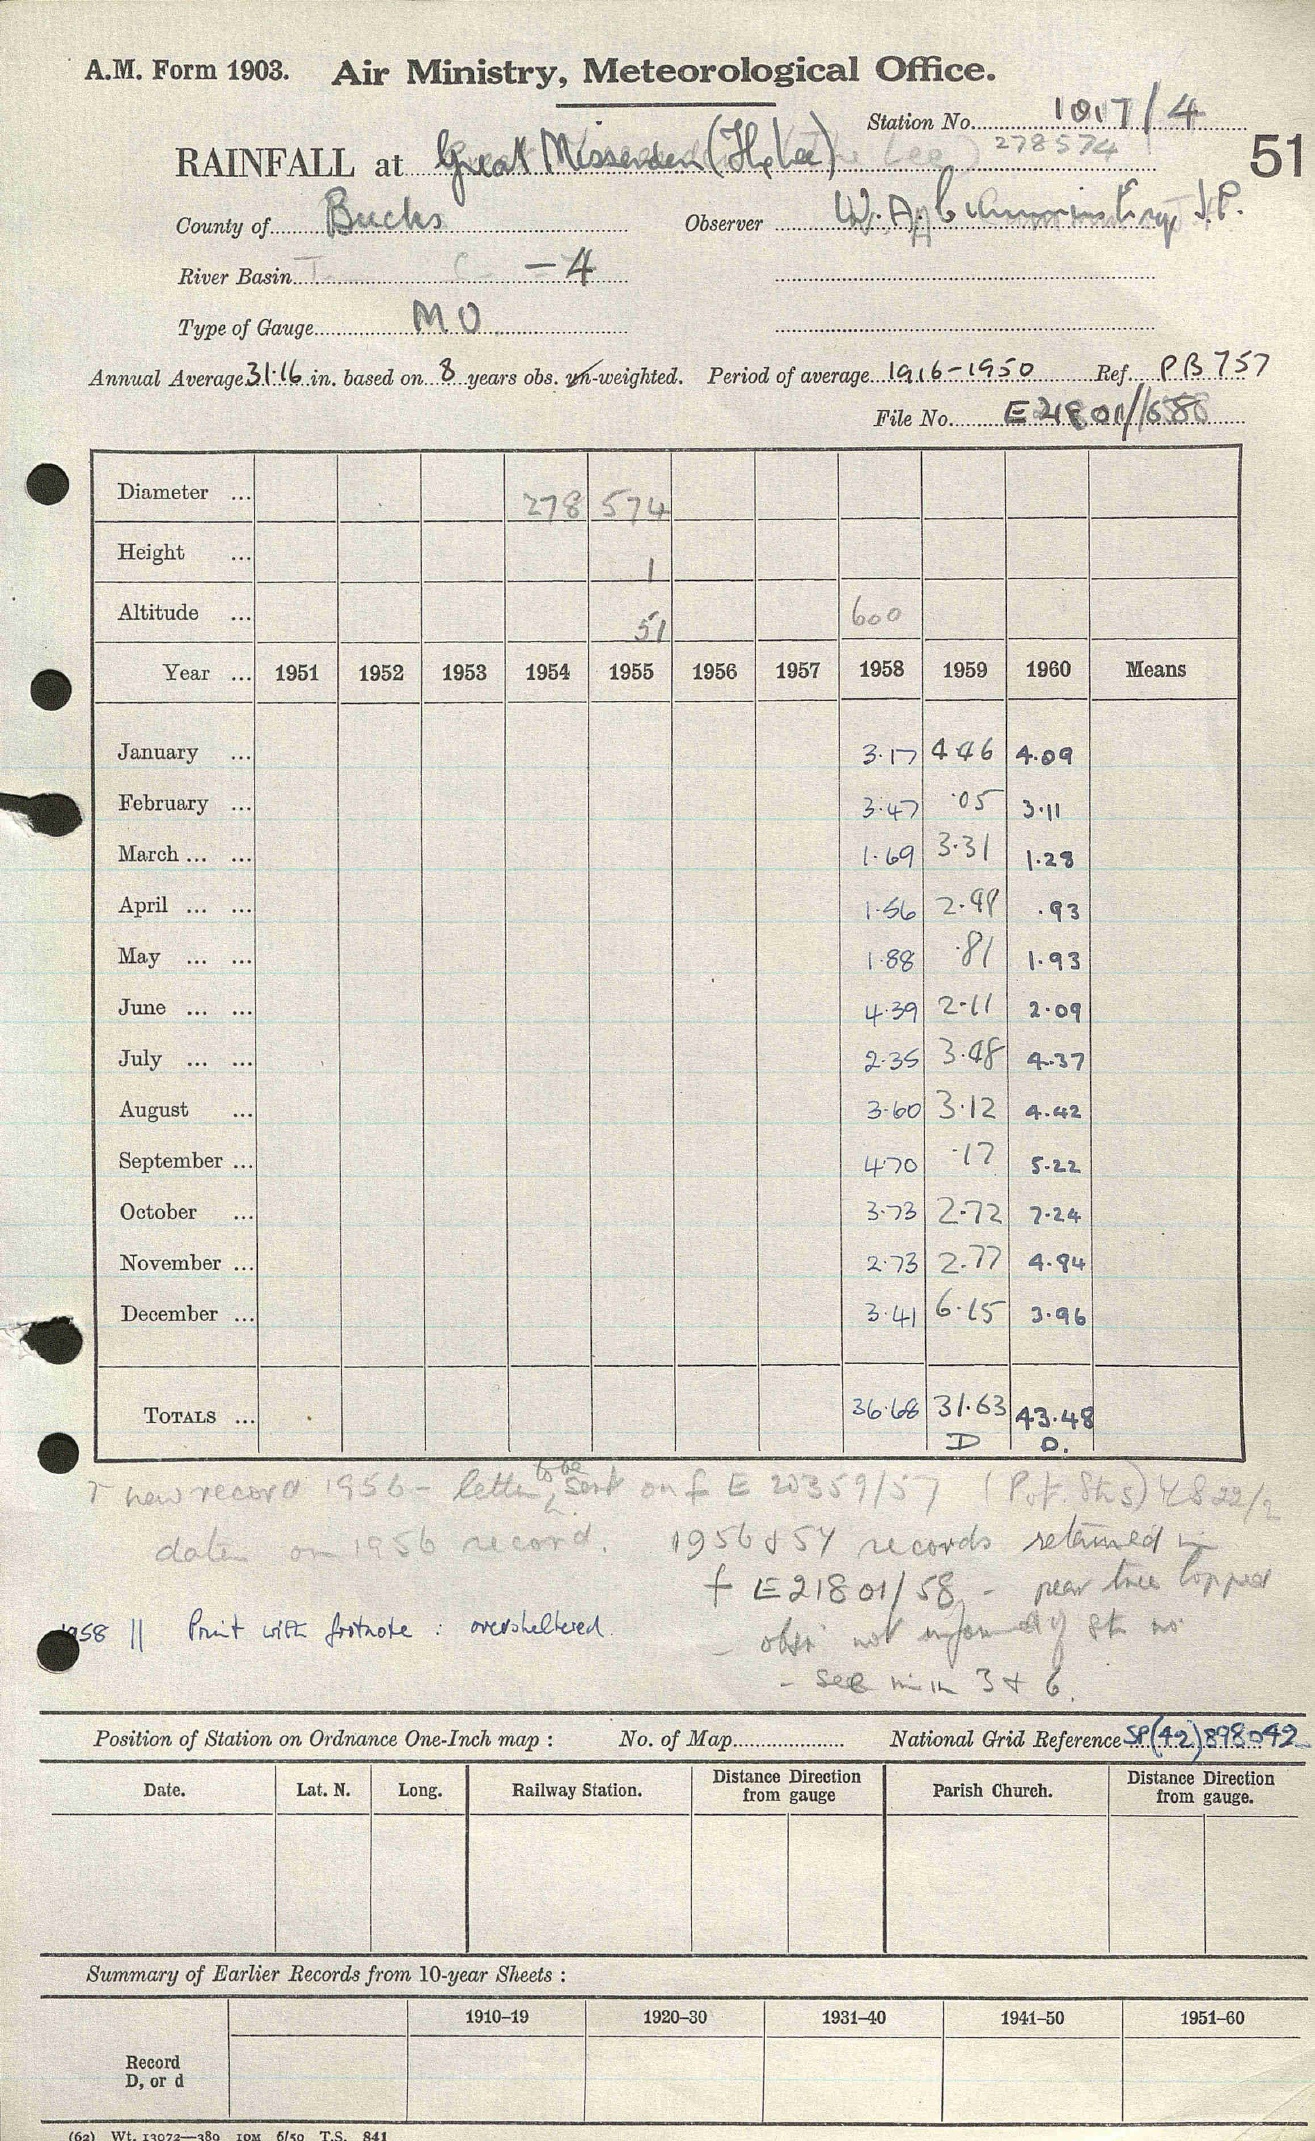 A.M. Form 1903. Air Ministry, Meteorological Office.
Station No. 1017/4
278574
51
RAINFALL at Great Missenden (The Lee)
County of Bucks Observer W. A. Cummins Esq. J.P.
River Basin - 4
Type of Gauge M O
Annual Average 31.16 in. based on 8 years obs. un-weighted. Period of average 1916-1950 Ref. PB 757
File No. E 21801/58
Diameter ... 278 574
Height ... 1
Altitude ... 51 600
Year ... 1951 1952 1953 1954 1955 1956 1957 1958 1959 1960 Means
January ... 3.17 4.46 4.09
February ... 3.47 .05 3.11
March ... ... 1.69 3.31 1.28
April ... ... 1.56 2.48 .93
May ... ... 1.88 .81 1.93
June ... ... 4.39 2.11 2.09
July ... ... 2.35 3.48 4.37
August ... 3.60 3.12 4.42
September ... 4.70 .17 5.22
October ... 3.73 2.72 7.24
November ... 2.73 2.77 4.84
December ... 3.41 6.15 3.96
TOTALS ... 36.68 31.63 43.48
D D.
new record 1956 - letter to be sent on f E 20359/57 (Pot. Stns) 4822/2
date on 1956 record. 1956 & 57 records retained in
f E21801/58 - pear tree lopped
1958 || Print with footnote : oversheltered.
- obsr not informed of stn no
- see min 3 & 6.
Position of Station on Ordnance One-Inch map : No. of Map National Grid Reference SP(42)898042
Date. Lat. N. Long. Railway Station. Distance Direction from gauge Parish Church. Distance Direction from gauge.
Summary of Earlier Records from 10-year Sheets :
1910–19 1920–30 1931–40 1941–50 1951–60
Record
D, or d
(62) Wt. 13072—389 10M 6/50 T.S. 841